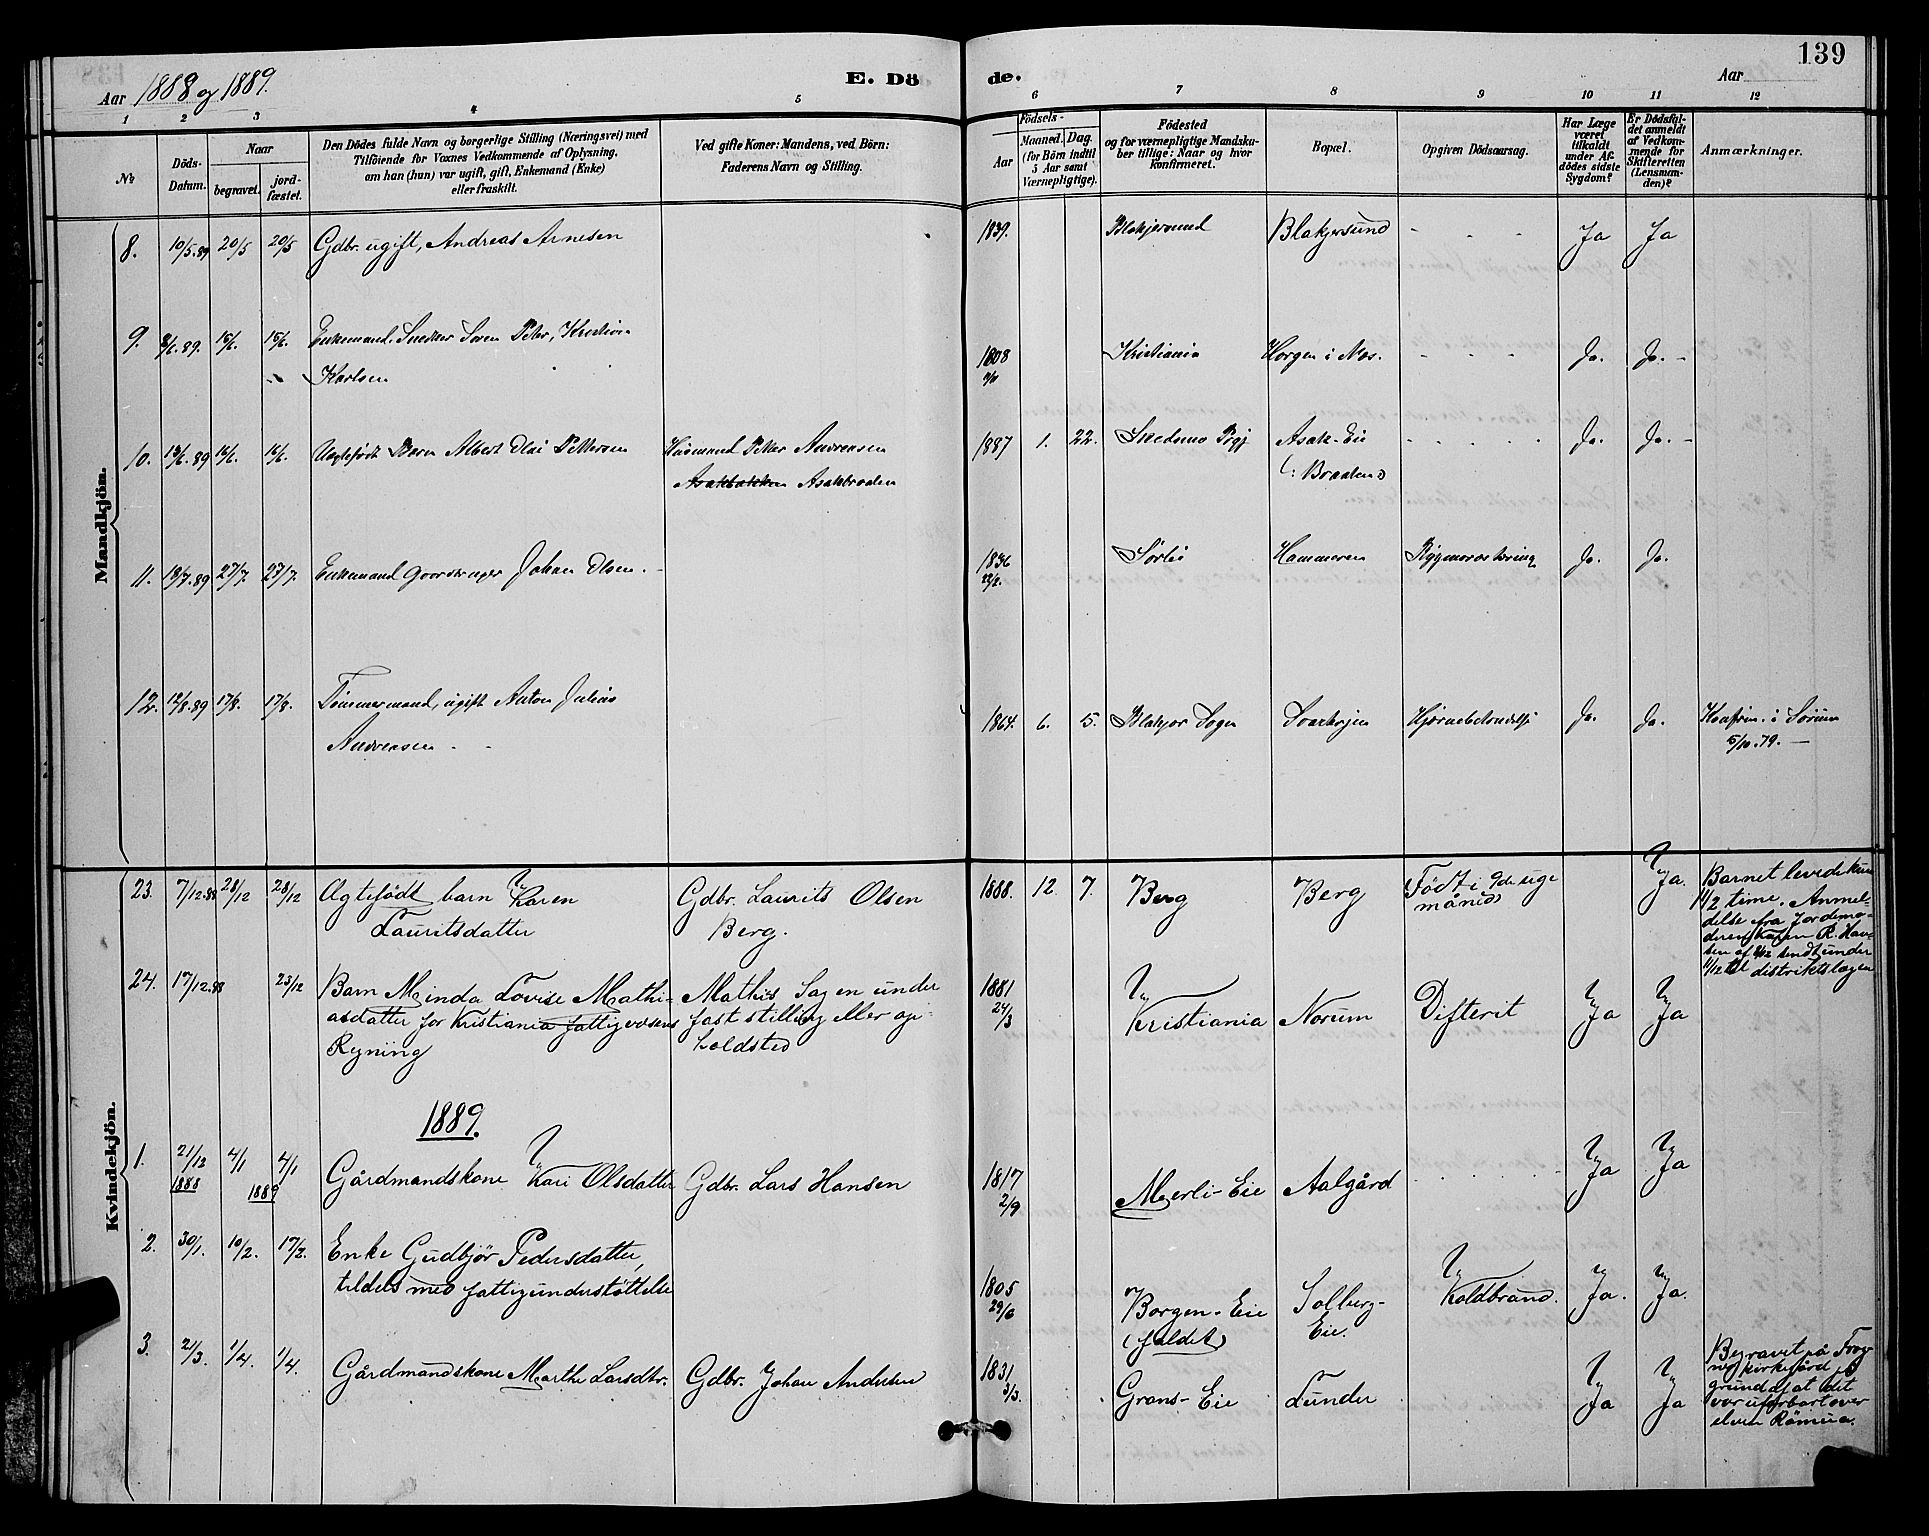 139
Aar 1888 og 1889.
E. Dö
de.
Aar
1 2 3 4 5 6 7 8 9 10 11 12
No
Döds-
Datum.
Naar
begravet.
jord-
fæstet.
Den Dödes fulde Navn og borgerlige Stilling (Næringsvei) med
Tilföiende for Voxnes Vedkommende af Oplysning,
om han (hun) var ugift, gift, Enkemand (Enke)
eller fraskilt.
Ved gifte Koner: Mandens, ved Börn:
Faderens Navn og Stilling.
Födsels-
Aar
Maaned.
Dag.
(for Börn indtil
5 Aar samt
Værnepligtige).
Födested
og for værnepligtige Mandsku-
ber tillige: Naar og hvor
konfirmeret.
Bopæl.
Opgiven Dödsaarsag.
Har Læge
været
tilkaldt
under Af-
dödes sidste
Sygdom?
Er Dödsfal-
det anmeldt
af Vedkom-
mende for
Skifteretten
(Lensman-
den)?
Anmærkninger.
Mandkjön.
8. 10/5.89 20/5 20/5 Gdbr. ugift, Andreas Arnesen 1839. Blakjersund Blakjersund Ja Ja
9. 8/6.89. 15/6. 15/6. Enkemand. Snedker Soren Peter, Kristian
Karlsen
1808 Kristiania Horgen i Næs. Ja. Ja.
10. 13/6.89 16/6. 16/6. Uegtefödt Barn Albert Olai Pettersen Husmand Petter Andreasen
Asakbakken Asakbraaten
1887 1. 22. Skedsmo Pgj Asak-Eie
(: Braaten :)
Ja. Ja.
11. 18/7.89 27/7. 27/7. Enkemand Gaardbruger Johan Olsen. 1836
22/2.
Sörli Hammeren Rygmarvstæring Ja. Ja.
12. 12/8.89 17/8. 17/8. Tömmermand, ugift Anton Julius
Andreasen
1864. 6. 5. Blakjer Sogn Hjernebetændelse Ja. Ja. Konfirm. i Sörum
5/10.79.
Kvindekjön.
23. 7/12.88 28/12 28/12 Ægtefödt barn Karen
Lauritsdatter
Gdbr. Laurits Olsen
Berg.
1888. 12. 7. Berg Berg Født i 9de
måned
Ja. Barnet levede kun
1/2 time. Anmel-
delse fra Jordemo-
deren Karen R. Han-
sen af 8/12 sendt under
11/12 til distriktslægen
24. 17/12.88 23/12 Barn Minda Lovise Mathi-
asdatter for Kristiania fattigvæsens
Regning
Mathis Sagen under
fast stilling eller op-
holdsted
1881
24/3
Kristiania Norum Difterit Ja Ja
1889.
1. 21/12
1888
4/1 4/1
1889
Gårdmandskone Kari Olsdatter Gdbr. Lars Hansen 1817
2/9
Merli-Eie Aalgård Ja Ja
2. 30/1. 10/2. 17/2. Enke Gudbjör Pedersdatter,
tildels med fattigunderstöttelse
1805
29/6
Borgen-Eie
(faldet)
Solberg-
Eie.
Koldbrand. Ja. Ja.
3. 21/3. 1/4. 1/4 Gårdmandskone Marthe Larsdtr. Gdbr. Johan Andersen 1831
3/3.
Grans-Eie Lunder Ja Ja Begravet på Frog-
ner kirkegård på
grund af at det
var uförbart over
elven Römua.